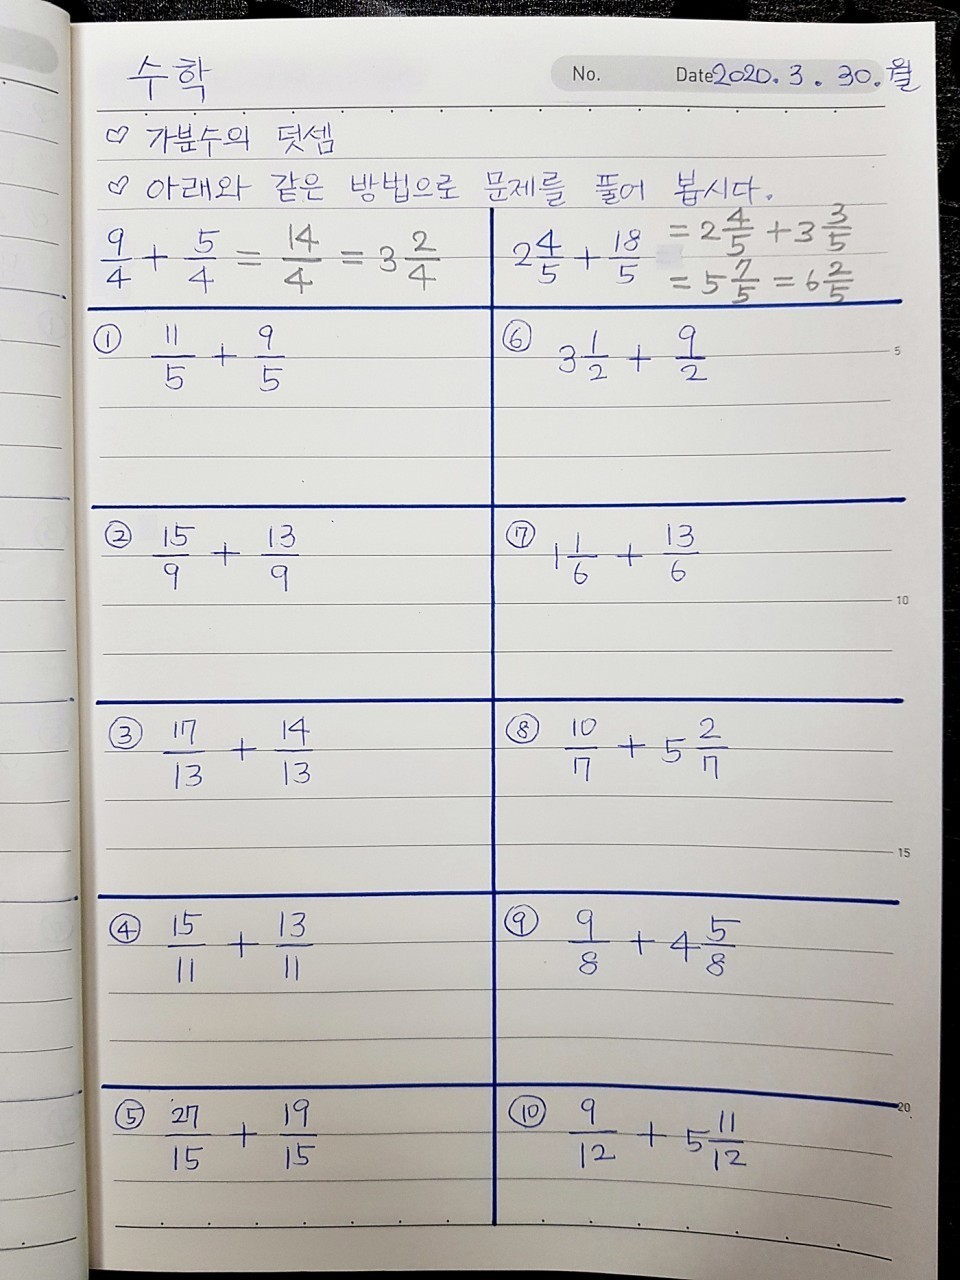 수학
No. Date 2020. 3. 30. 월
♡ 가분수의 덧셈
♡ 아래와 같은 방법으로 문제를 풀어 봅시다.
9/4 + 5/4 = 14/4 = 3 2/4
2 4/5 + 18/5 = 2 4/5 + 3 3/5
= 5 7/5 = 6 2/5
① 11/5 + 9/5
⑥ 3 1/2 + 9/2
5
② 15/9 + 13/9
⑦ 1 1/6 + 13/6
10
③ 17/13 + 14/13
⑧ 10/7 + 5 2/7
15
④ 15/11 + 13/11
⑨ 9/8 + 4 5/8
20
⑤ 27/15 + 19/15
⑩ 9/12 + 5 11/12